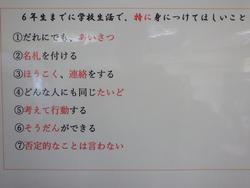 ６年生までに学校生活で、特に身につけてほしいこと
①だれにでも、あいさつ
②名札を付ける
③ほうこく、連絡をする
④どんな人にも同じたいど
⑤考えて行動する
⑥そうだんができる
⑦否定的なことは言わない